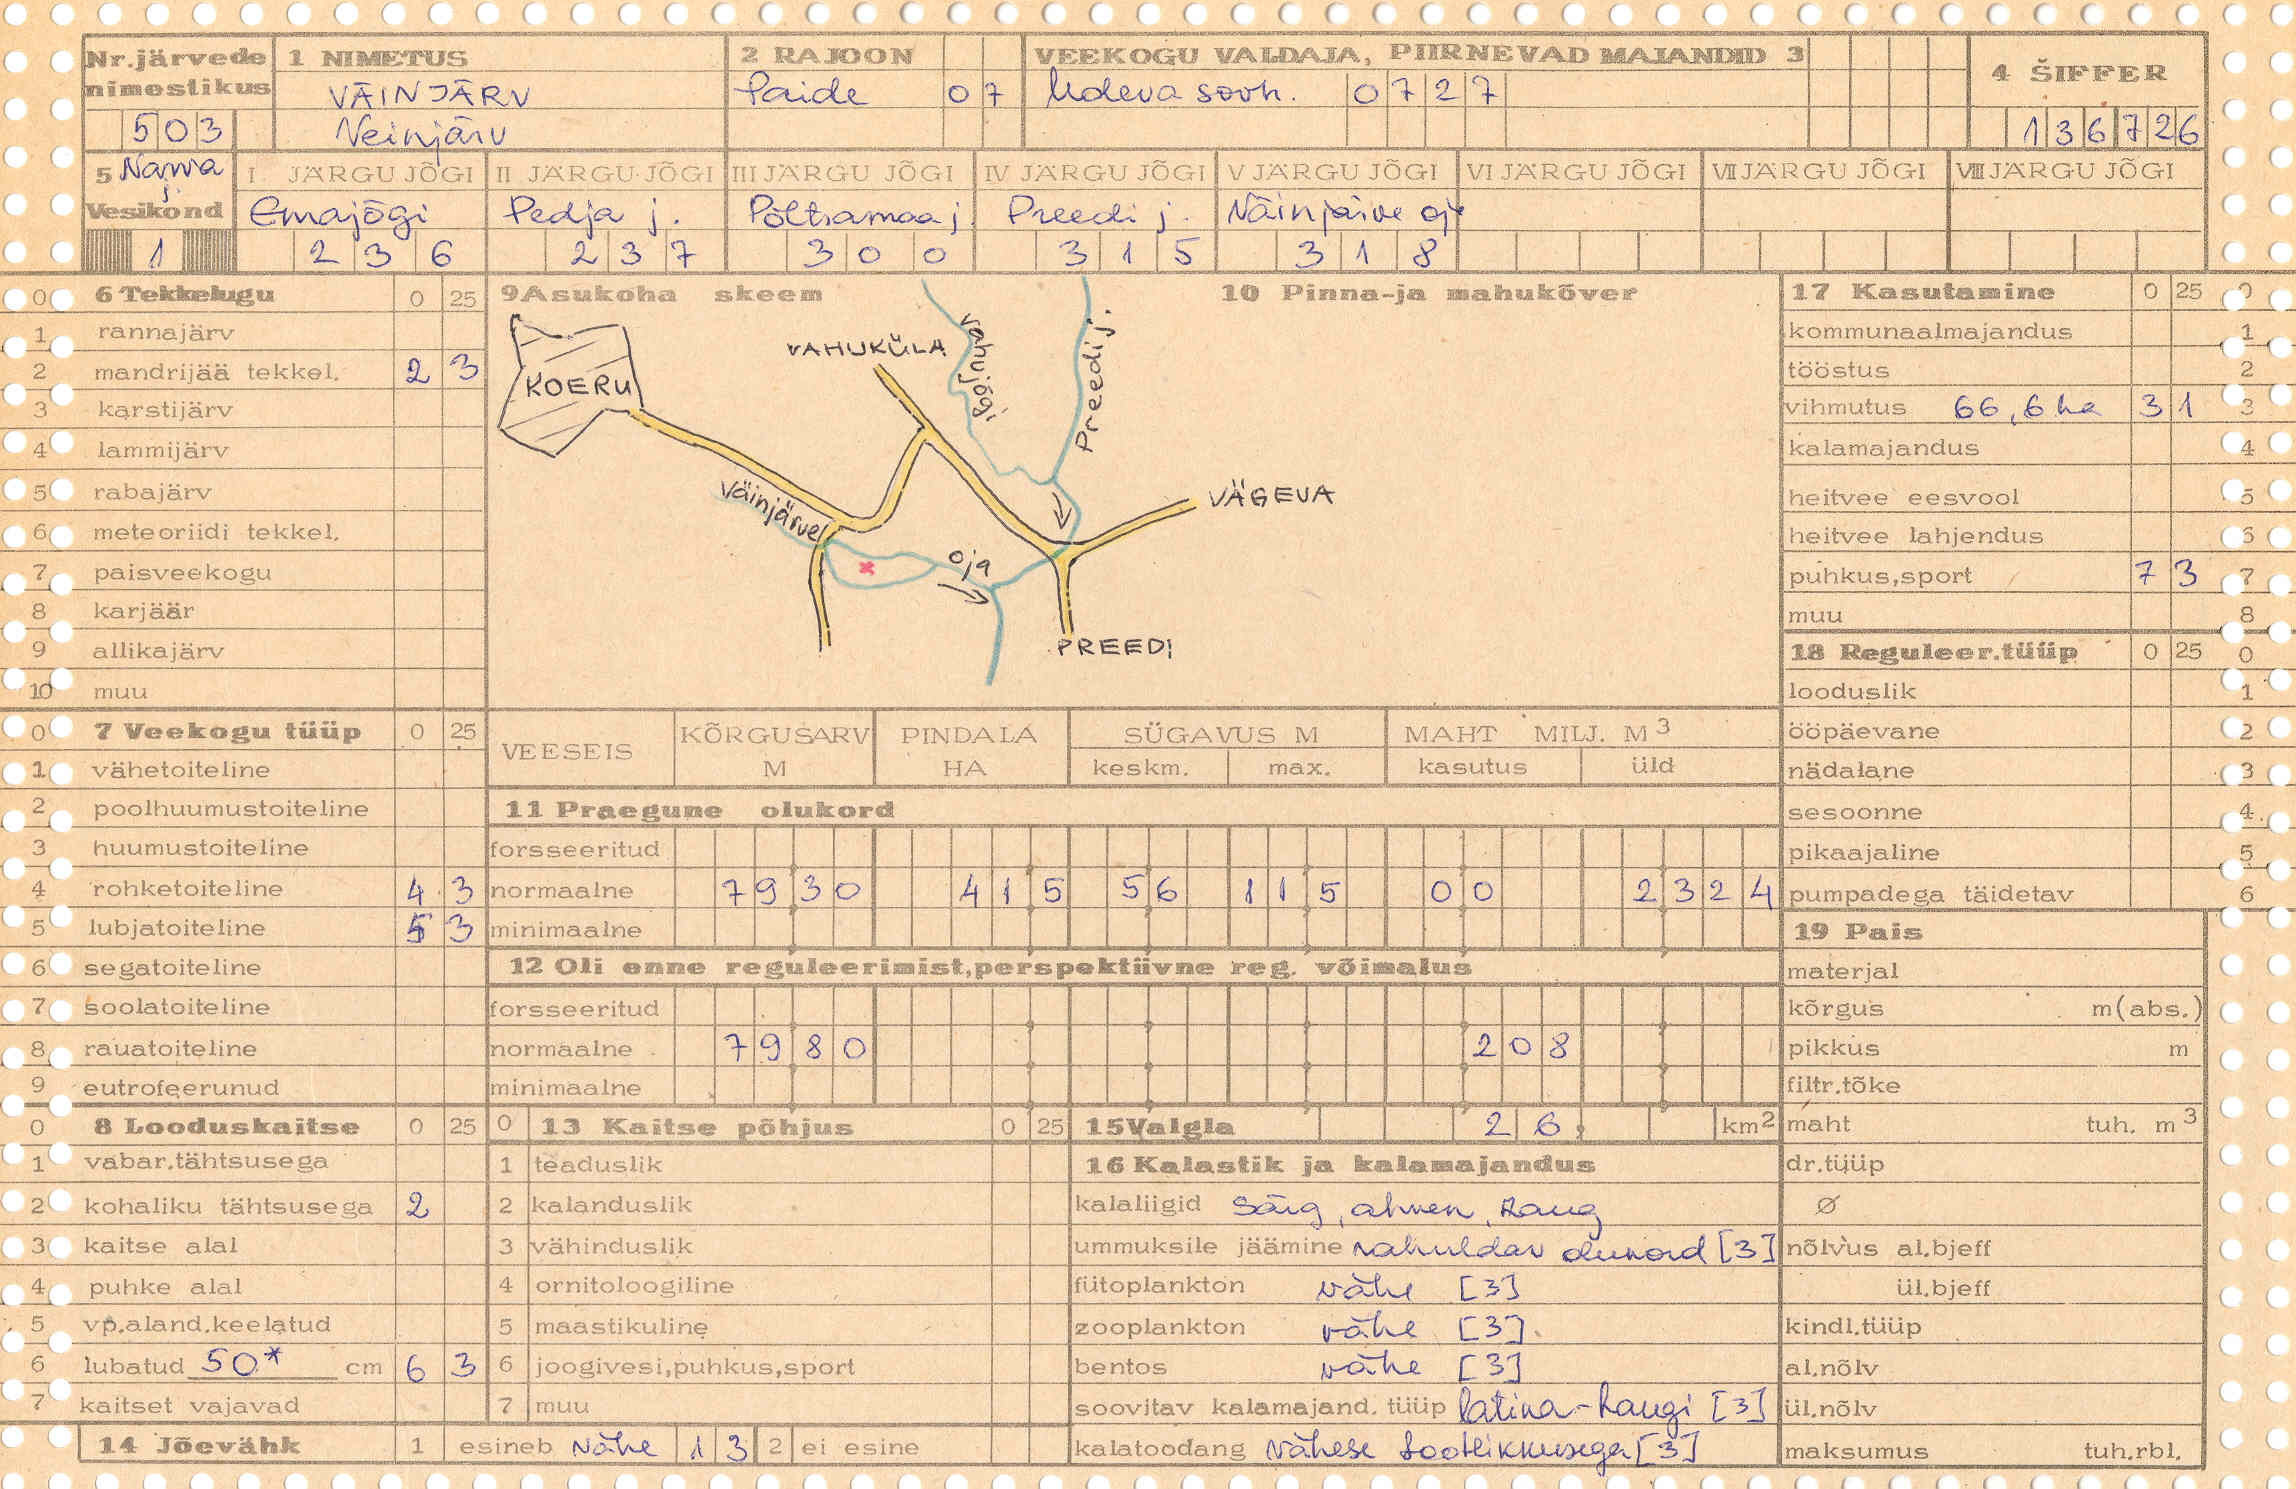 Nr.järvede nimestikus 503
1 NIMETUS
VÄINJÄRV
Veinjärv
2 RAJOON
Paide 07
VEEKOGU VALDAJA, PIIRNEVAD MAJANDID 3
Udeva sovh. 0727
4 ŠIFFER
136726
5 Narva j. Vesikond 1
I JÄRGU JÕGI
Emajõgi
236
II JÄRGU JÕGI
Pedja j.
237
III JÄRGU JÕGI
Põltsamaa j.
300
IV JÄRGU JÕGI
Preedi j.
315
V JÄRGU JÕGI
Väinjärve oja
318
VI JÄRGU JÕGI
VII JÄRGU JÕGI
VIII JÄRGU JÕGI
0 6 Tekkelugu 0 25
1 rannajärv
2 mandrijää tekkel. 2 3
3 karstijärv
4 lammijärv
5 rabajärv
6 meteoriidi tekkel.
7 paisveekogu
8 karjäär
9 allikajärv
10 muu
0 7 Veekogu tüüp 0 25
1 vähetoiteline
2 poolhuumustoiteline
3 huumustoiteline
4 rohketoiteline 4 3
5 lubjatoiteline 5 3
6 segatoiteline
7 soolatoiteline
8 rauatoiteline
9 eutrofeerunud
0 8 Looduskaitse 0 25
1 vabar.tähtsusega
2 kohaliku tähtsusega 2
3 kaitse alal
4 puhke alal
5 vp.aland.keelatud
6 lubatud 50* cm 6 3
7 kaitset vajavad
14 Jõevähk 1 esineb vähe 1 3 2 ei esine
9 Asukoha skeem
KOERU
VAHUKÜLA
Vahujõgi
Preedi j.
VÄGEVA
Väinjärve
oja
PREEDI
10 Pinna-ja mahukõver
VEESEIS
KÕRGUSARV M
PINDALA HA
SÜGAVUS M
keskm. max.
MAHT MILJ. M3
kasutus üld
11 Praegune olukord
forsseeritud
normaalne 7930 415 56 115 00 2324
minimaalne
12 Oli enne reguleerimist,perspektiivne reg. võimalus
forsseeritud
normaalne 7980 208
minimaalne
0 13 Kaitse põhjus 0 25
1 teaduslik
2 kalanduslik
3 vähinduslik
4 ornitoloogiline
5 maastikuline
6 joogivesi,puhkus,sport
7 muu
15 Valgla 26, km2
16 Kalastik ja kalamajandus
kalaliigid särg, ahven, haug
ummuksile jäämine rahuldav olukord [3]
fütoplankton vähe [3]
zooplankton vähe [3]
bentos vähe [3]
soovitav kalamajand. tüüp latika-haugi [3]
kalatoodang vähese tootlikkusega [3]
17 Kasutamine 0 25 0
kommunaalmajandus 1
tööstus 2
vihmutus 66,6 ha 3 1 3
kalamajandus 4
heitvee eesvool 5
heitvee lahjendus 6
puhkus,sport 7 3 7
muu 8
18 Reguleer.tüüp 0 25 0
looduslik 1
ööpäevane 2
nädalane 3
sesoonne 4
pikaajaline 5
pumpadega täidetav 6
19 Pais
materjal
kõrgus m(abs.)
pikkus m
filtr.tõke
maht tuh. m3
dr.tüüp
Ø
nõlvus al.bjeff
ül.bjeff
kindl.tüüp
al.nõlv
ül.nõlv
maksumus tuh.rbl.